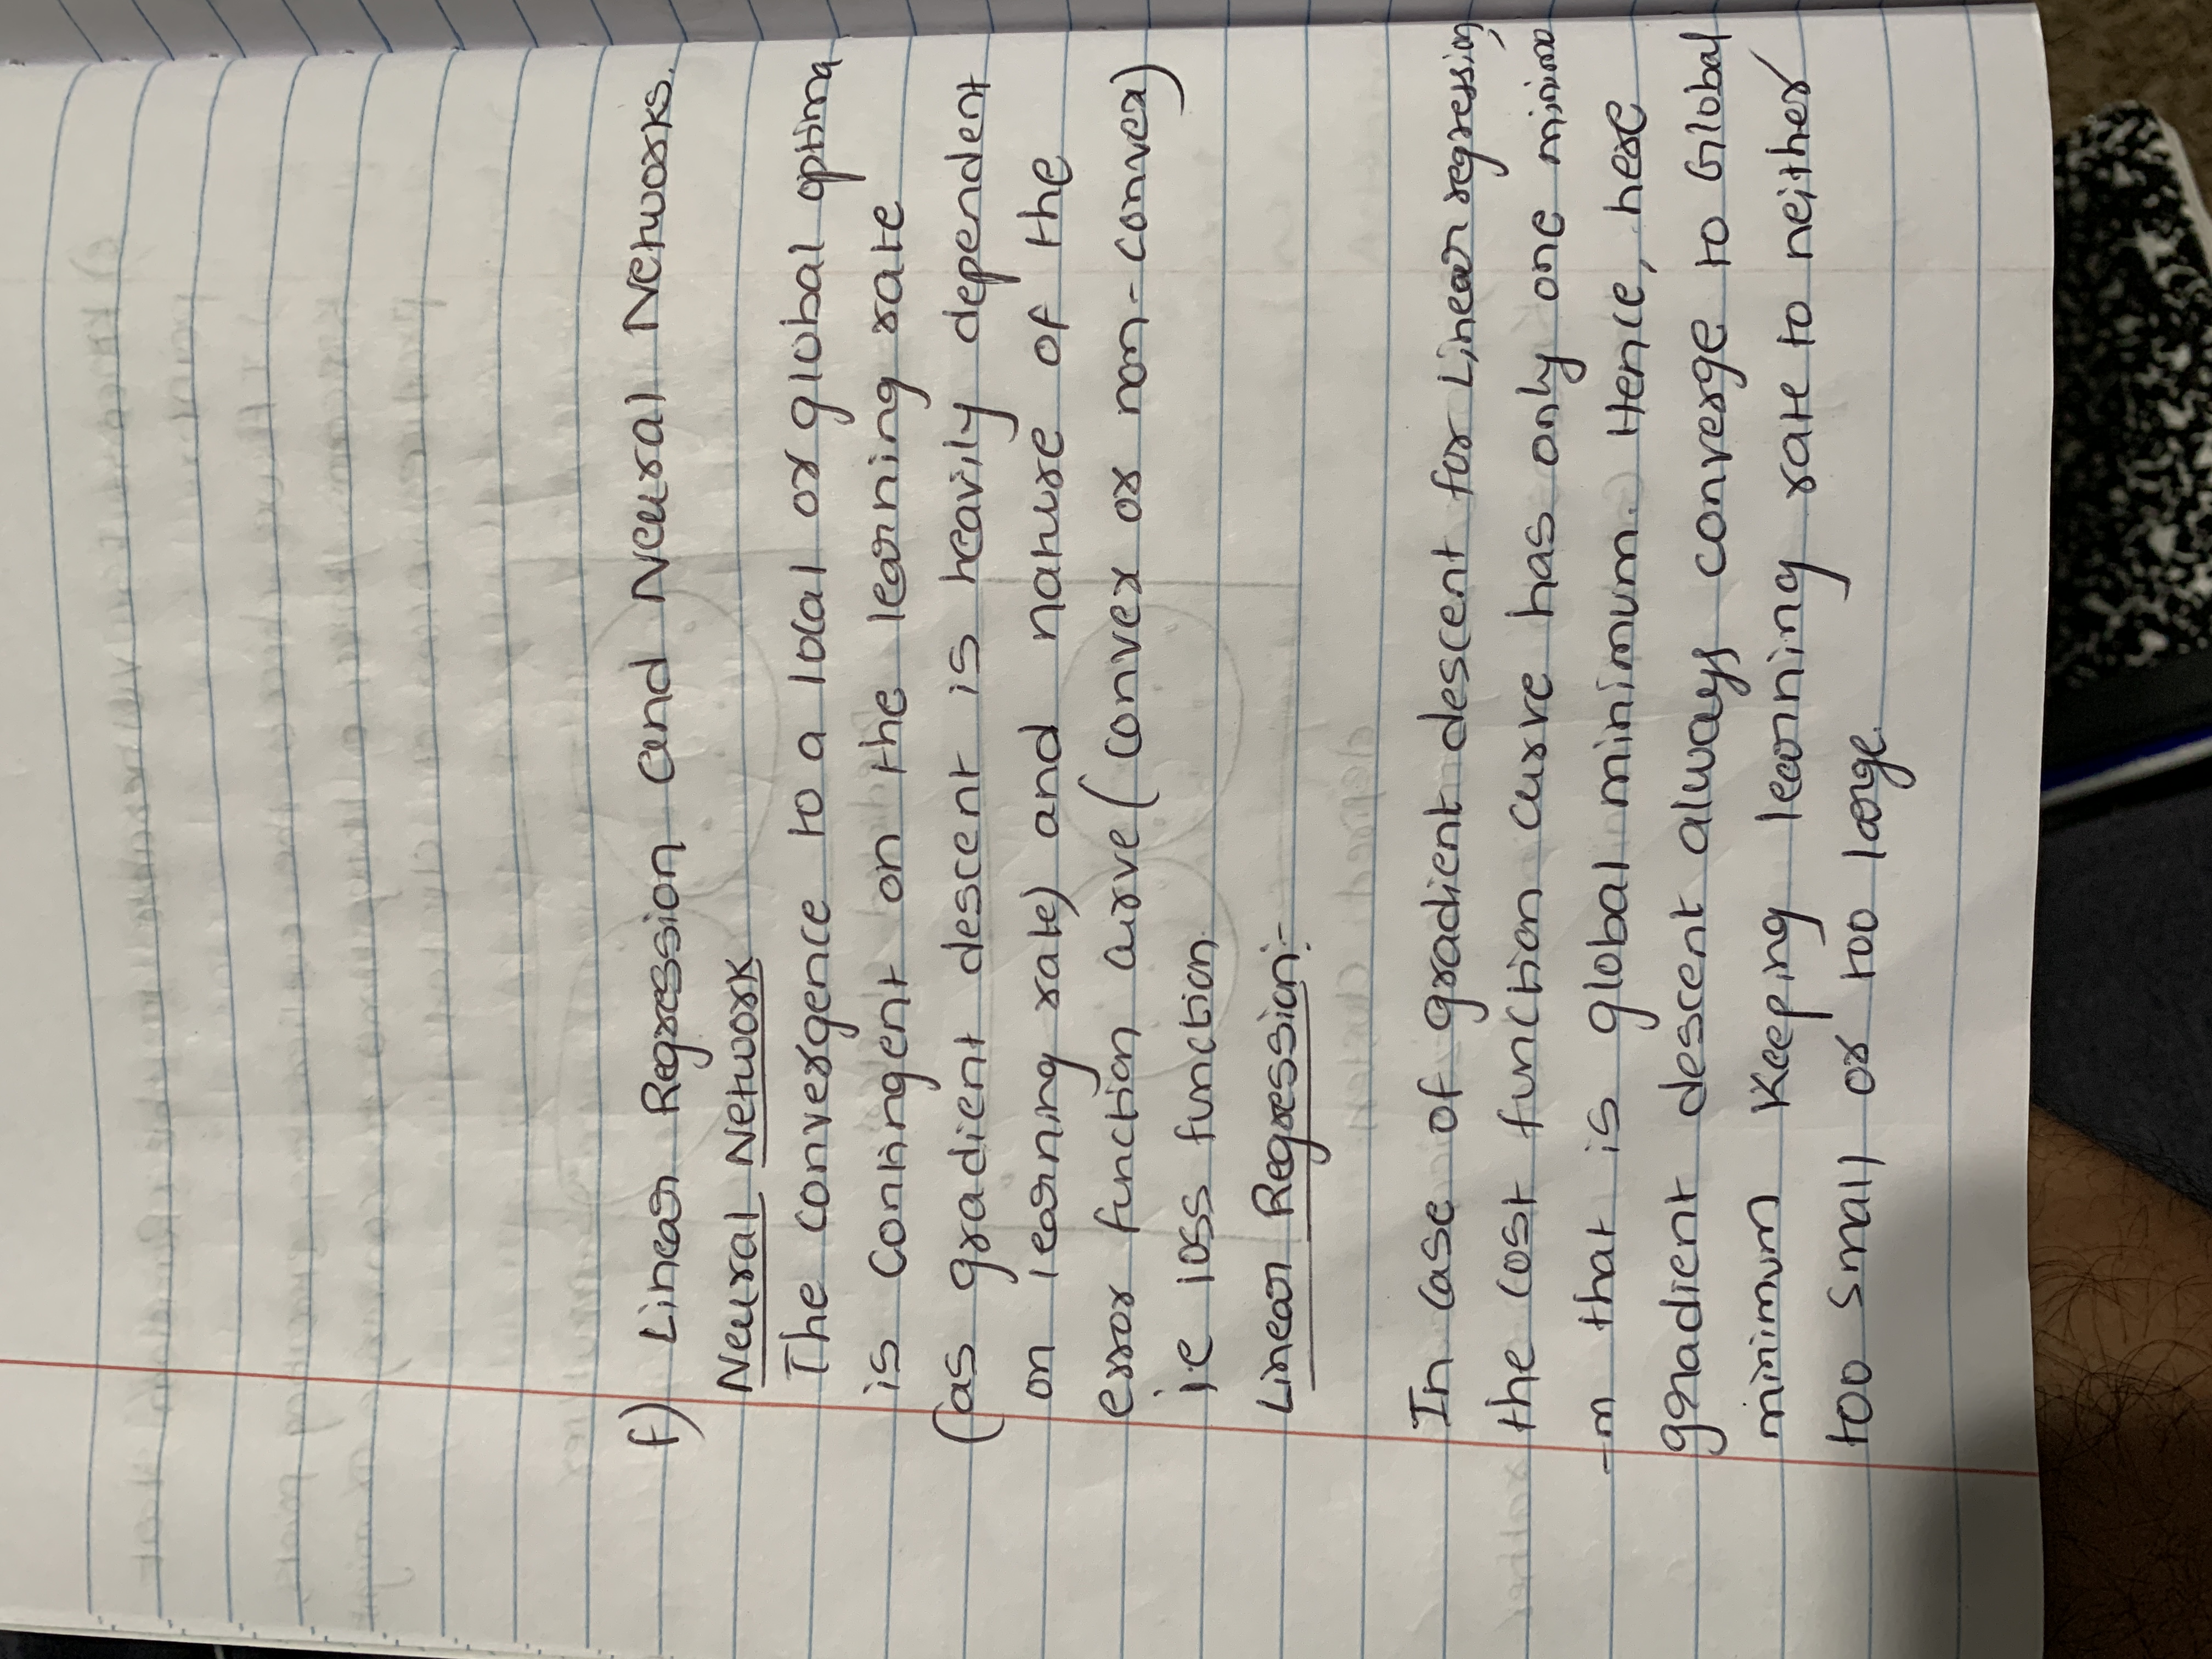 f) Linear Regression and Neural Networks.
Neural Network
The convergence to a local or global optima
is contingent on the learning rate
(as gradient descent is heavily dependent
on learning rate) and nature of the
error function curve (convex or non-convex)
i.e loss function.
Linear Regression:-
In case of gradient descent for Linear regression,
the cost function curve has only one minimu
-m that is global minimum. Hence, here
gradient descent always converge to Global
minimum Keeping learning rate to neither
too small or too large.